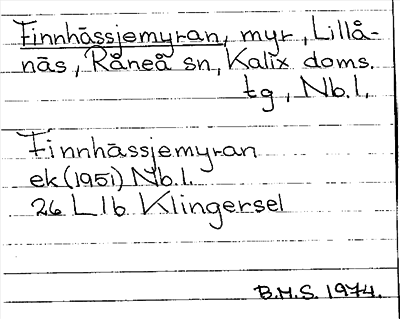 Finnhässjemyran, myr, Lillå-
näs, Råneå sn, Kalix doms.
tg, Nb.l.
Finnhässjemyran
ek (1951) Nb.l.
26 Llb Klingersel
B.M.S. 1974.